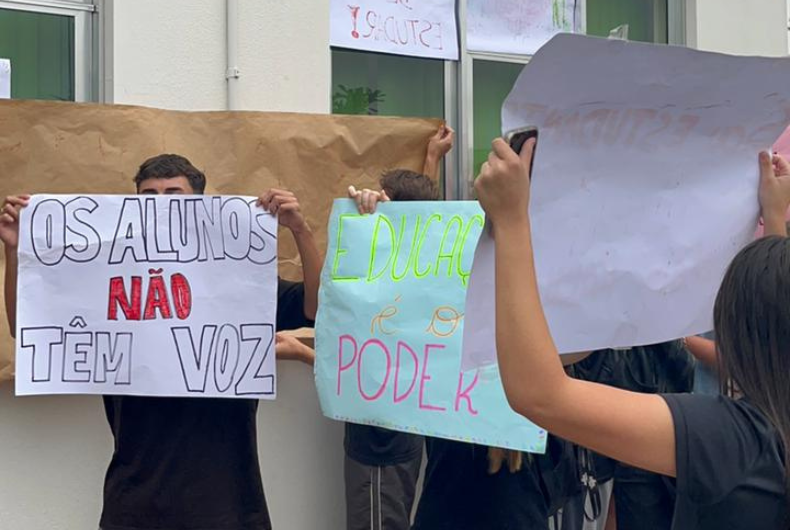 ESTUDAR!
OS ALUNOS
NÃO
TÊM VOZ
EDUCAÇ
é o
PODER